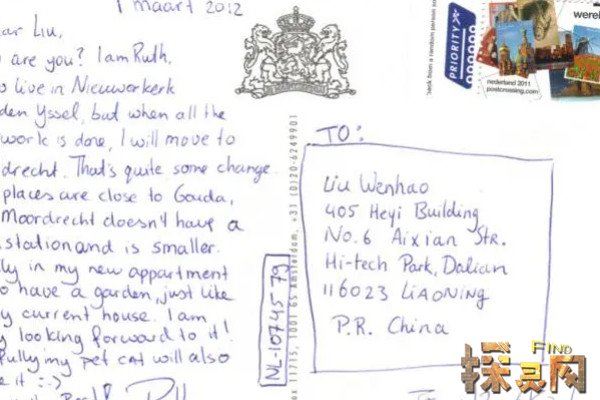 1 maart 2012
ar Liu,
are you? I am Ruth,
o live in Nieuwerkerk
den Yssel, but when all the
work is done, I will move to
drecht. That's quite some change.
places are close to Gouda,
Moordrecht doesn't have a
station and is smaller.
ly in my new appartment
o have a garden, just like
y current house. I am
y looking forward to it!
fully my pet cat will also
e it :-)
PRIORITY
werel
nederland 2011
postcrossing.com
TO:
Liu Wenhao
405 Heyi Building
No. 6 Aixian Str.
Hi-tech Park, Dalian
116023 LIAONING
P.R. China
NL-1074579
x 11715, 1001 GS Amsterdam, +31 (0)20-6249901
FIND
探灵网